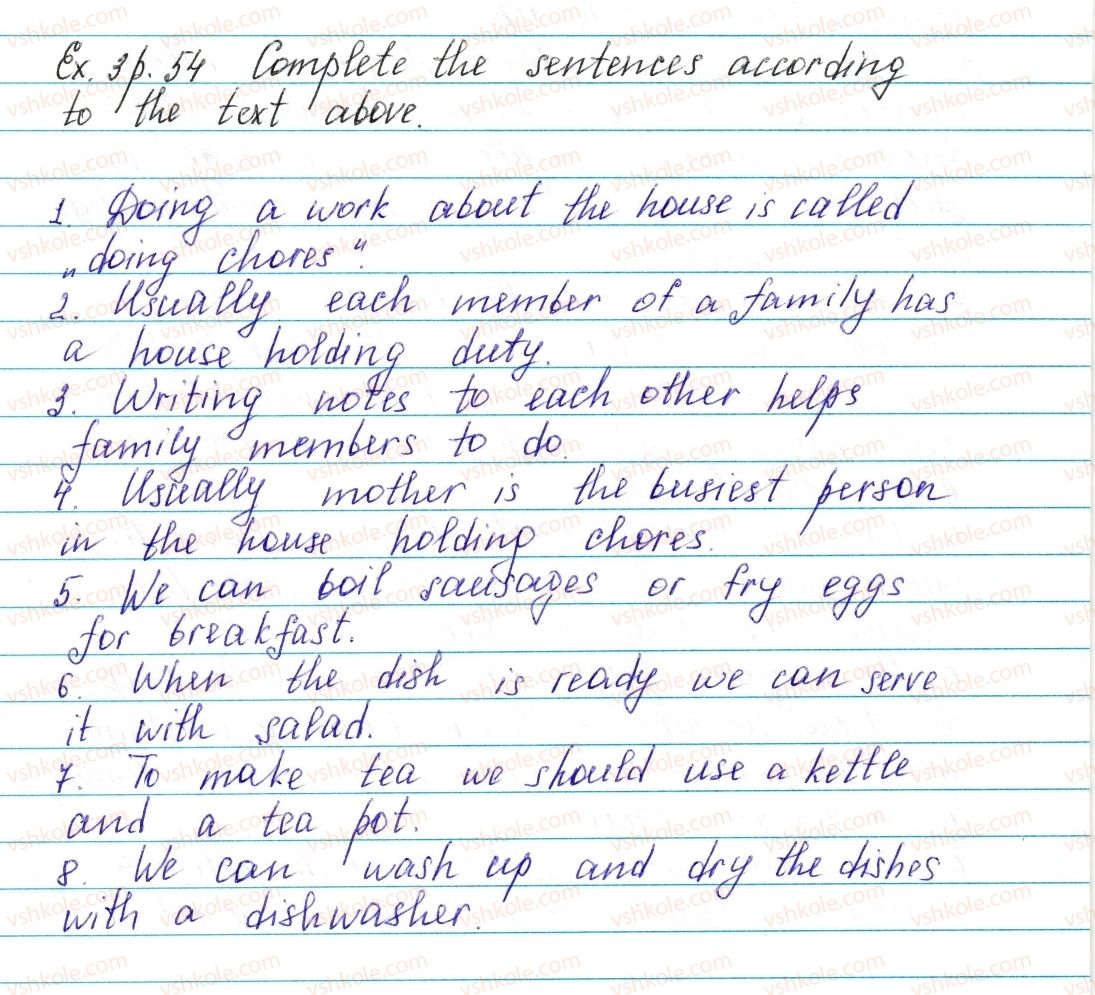 Ex. 3 p. 54 Complete the sentences according
to the text above.
1. Doing a work about the house is called
„doing chores".
2. Usually each member of a family has
a house holding duty.
3. Writing notes to each other helps
family members to do.
4. Usually mother is the busiest person
in the house holding chores.
5. We can boil sausages or fry eggs
for breakfast.
6. When the dish is ready we can serve
it with salad.
7. To make tea we should use a kettle
and a tea pot.
8. We can wash up and dry the dishes
with a dishwasher.
vshkole.com